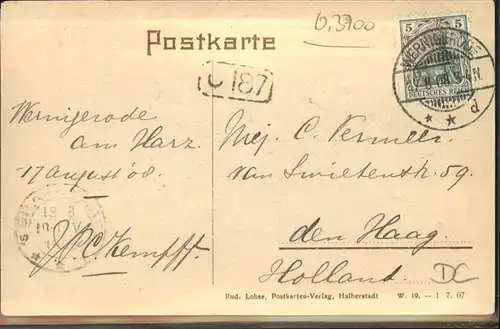 0,3700
Postkarte
5 5
DEUTSCHES REICH
WERNIGERODE
d
C 187
Wernigerode
am Harz.
17 august '08.
J.P.C. Kempff.
Mej. C. Vermeer.
van Swietenstr. 59.
den Haag.
Holland.
DC
Rud. Lohse, Postkarten-Verlag, Halberstadt W. 19. – 1. 7. 07